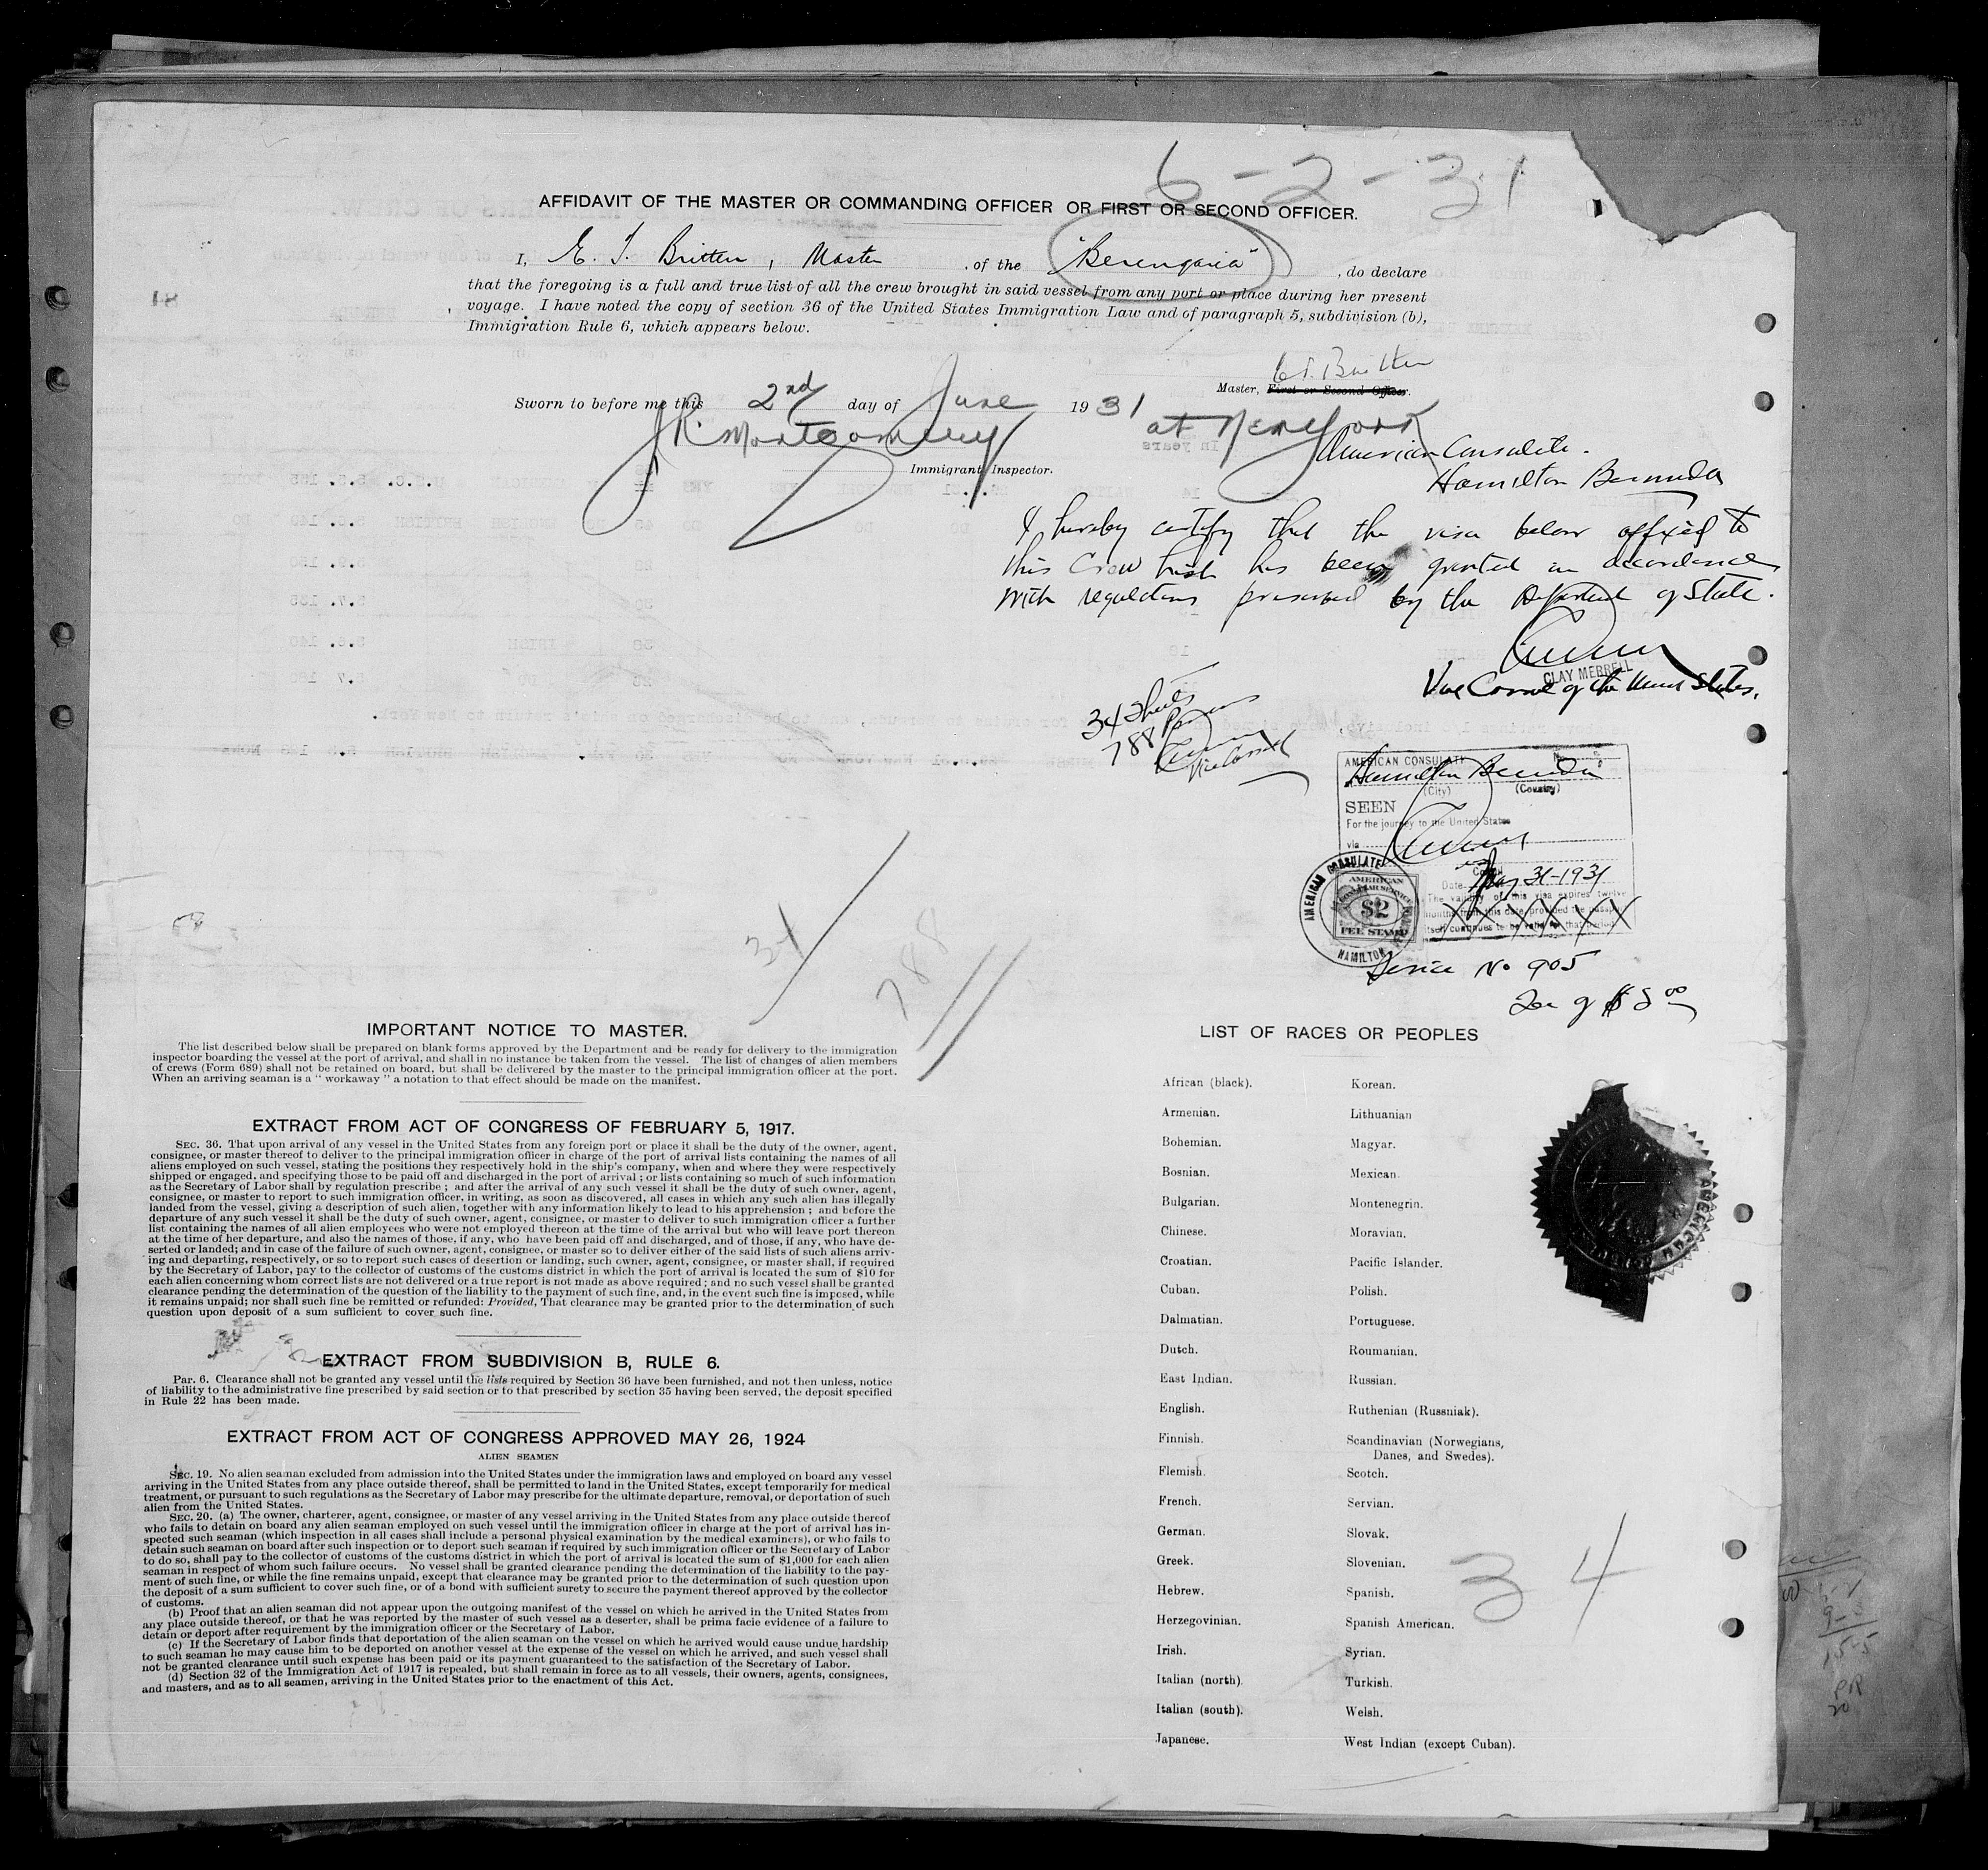 6-2-31
AFFIDAVIT OF THE MASTER OR COMMANDING OFFICER OR FIRST OR SECOND OFFICER.
I, E. T. Britten, Master, of the "Berengaria", do declare
that the foregoing is a full and true list of all the crew brought in said vessel from any port or place during her present
voyage. I have noted the copy of section 36 of the United States Immigration Law and of paragraph 5, subdivision (b),
Immigration Rule 6, which appears below.
E.T. Britten
Master, First or Second Officer.
Sworn to before me this 2nd day of June 1931
at New York
J R Montgomery
Immigrant Inspector.
American Consulate.
Hamilton Bermuda
I hereby certify that the visa below affixed to
this Crew List has been granted in accordance
with regulations prescribed by the Department of State.
CLAY MERRELL
Vice Consul of the United States.
34 Sheets
788 Persons
Vice Consul
AMERICAN CONSULATE
Hamilton Bermuda
(City) (Country)
SEEN
For the journey to the United States
via
Date May 31-1931
The validity of this visa expires twelve
months from this date provided the passport
itself continues to be valid for that period.
XXXXXX
AMERICAN CONSULATE
HAMILTON
AMERICAN
CONSULAR SERVICE
$2
FEE STAMP
Service No 905
Fee of $2.00
34
788
IMPORTANT NOTICE TO MASTER.
The list described below shall be prepared on blank forms approved by the Department and be ready for delivery to the immigration
inspector boarding the vessel at the port of arrival, and shall in no instance be taken from the vessel. The list of changes of alien members
of crews (Form 689) shall not be retained on board, but shall be delivered by the master to the principal immigration officer at the port.
When an arriving seaman is a " workaway " a notation to that effect should be made on the manifest.
EXTRACT FROM ACT OF CONGRESS OF FEBRUARY 5, 1917.
SEC. 36. That upon arrival of any vessel in the United States from any foreign port or place it shall be the duty of the owner, agent,
consignee, or master thereof to deliver to the principal immigration officer in charge of the port of arrival lists containing the names of all
aliens employed on such vessel, stating the positions they respectively hold in the ship's company, when and where they were respectively
shipped or engaged, and specifying those to be paid off and discharged in the port of arrival ; or lists containing so much of such information
as the Secretary of Labor shall by regulation prescribe ; and after the arrival of any such vessel it shall be the duty of such owner, agent,
consignee, or master to report to such immigration officer, in writing, as soon as discovered, all cases in which any such alien has illegally
landed from the vessel, giving a description of such alien, together with any information likely to lead to his apprehension ; and before the
departure of any such vessel it shall be the duty of such owner, agent, consignee, or master to deliver to such immigration officer a further
list containing the names of all alien employees who were not employed thereon at the time of the arrival but who will leave port thereon
at the time of her departure, and also the names of those, if any, who have been paid off and discharged, and of those, if any, who have de-
serted or landed; and in case of the failure of such owner, agent, consignee, or master so to deliver either of the said lists of such aliens arriv-
ing and departing, respectively, or so to report such cases of desertion or landing, such owner, agent, consignee, or master shall, if required
by the Secretary of Labor, pay to the collector of customs of the customs district in which the port of arrival is located the sum of $10 for
each alien concerning whom correct lists are not delivered or a true report is not made as above required ; and no such vessel shall be granted
clearance pending the determination of the question of the liability to the payment of such fine, and, in the event such fine is imposed, while
it remains unpaid; nor shall such fine be remitted or refunded: Provided, That clearance may be granted prior to the determination of such
question upon deposit of a sum sufficient to cover such fine.
EXTRACT FROM SUBDIVISION B, RULE 6.
Par. 6. Clearance shall not be granted any vessel until the lists required by Section 36 have been furnished, and not then unless, notice
of liability to the administrative fine prescribed by said section or to that prescribed by section 35 having been served, the deposit specified
in Rule 22 has been made.
EXTRACT FROM ACT OF CONGRESS APPROVED MAY 26, 1924
ALIEN SEAMEN
SEC. 19. No alien seaman excluded from admission into the United States under the immigration laws and employed on board any vessel
arriving in the United States from any place outside thereof, shall be permitted to land in the United States, except temporarily for medical
treatment, or pursuant to such regulations as the Secretary of Labor may prescribe for the ultimate departure, removal, or deportation of such
alien from the United States.
SEC. 20. (a) The owner, charterer, agent, consignee, or master of any vessel arriving in the United States from any place outside thereof
who fails to detain on board any alien seaman employed on such vessel until the immigration officer in charge at the port of arrival has in-
spected such seaman (which inspection in all cases shall include a personal physical examination by the medical examiners), or who fails to
detain such seaman on board after such inspection or to deport such seaman if required by such immigration officer or the Secretary of Labor
to do so, shall pay to the collector of customs of the customs district in which the port of arrival is located the sum of $1,000 for each alien
seaman in respect of whom such failure occurs. No vessel shall be granted clearance pending the determination of the liability to the pay-
ment of such fine, or while the fine remains unpaid, except that clearance may be granted prior to the determination of such question upon
the deposit of a sum sufficient to cover such fine, or of a bond with sufficient surety to secure the payment thereof approved by the collector
of customs.
(b) Proof that an alien seaman did not appear upon the outgoing manifest of the vessel on which he arrived in the United States from
any place outside thereof, or that he was reported by the master of such vessel as a deserter, shall be prima facie evidence of a failure to
detain or deport after requirement by the immigration officer or the Secretary of Labor.
(c) If the Secretary of Labor finds that deportation of the alien seaman on the vessel on which he arrived would cause undue hardship
to such seaman he may cause him to be deported on another vessel at the expense of the vessel on which he arrived, and such vessel shall
not be granted clearance until such expense has been paid or its payment guaranteed to the satisfaction of the Secretary of Labor.
(d) Section 32 of the Immigration Act of 1917 is repealed, but shall remain in force as to all vessels, their owners, agents, consignees,
and masters, and as to all seamen, arriving in the United States prior to the enactment of this Act.
LIST OF RACES OR PEOPLES
African (black).
Armenian.
Bohemian.
Bosnian.
Bulgarian.
Chinese.
Croatian.
Cuban.
Dalmatian.
Dutch.
East Indian.
English.
Finnish.
Flemish.
French.
German.
Greek.
Hebrew.
Herzegovinian.
Irish.
Italian (north).
Italian (south).
Japanese.
Korean.
Lithuanian
Magyar.
Mexican.
Montenegrin.
Moravian.
Pacific Islander.
Polish.
Portuguese.
Roumanian.
Russian.
Ruthenian (Russniak).
Scandinavian (Norwegians,
Danes, and Swedes).
Scotch.
Servian.
Slovak.
Slovenian.
Spanish.
Spanish American.
Syrian.
Turkish.
Welsh.
West Indian (except Cuban).
34